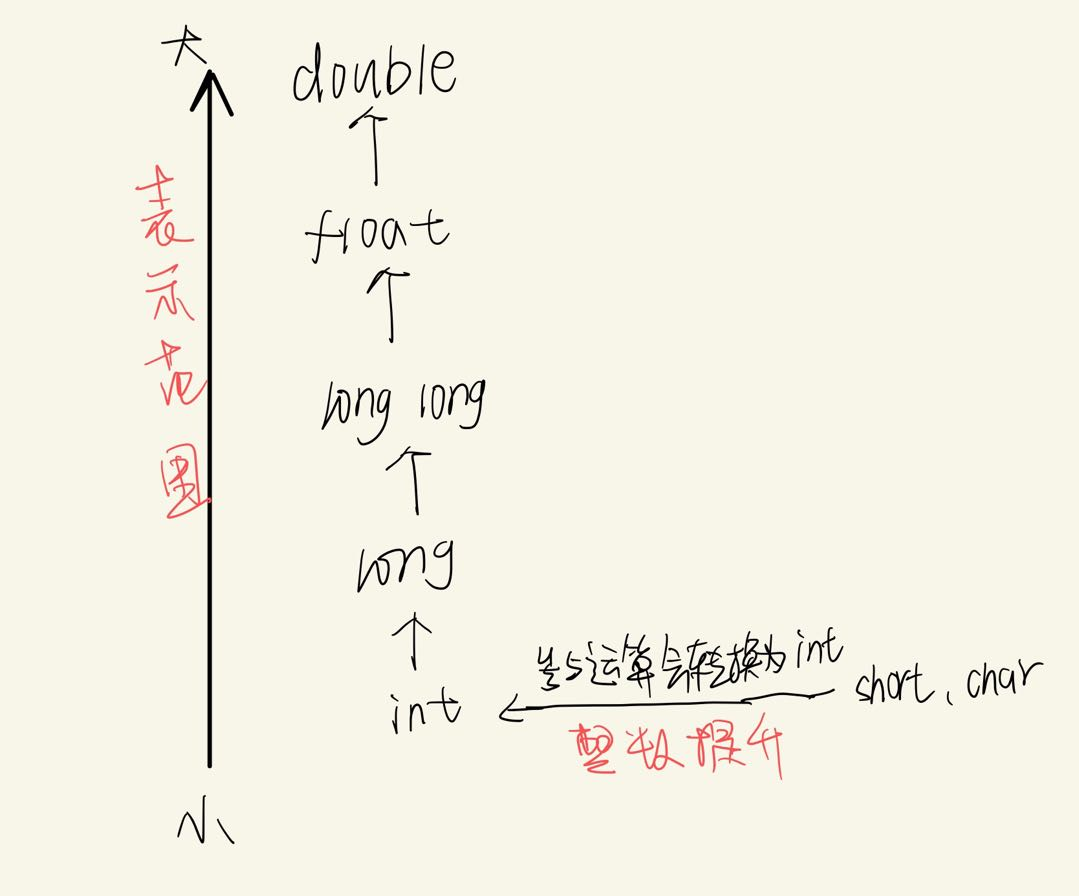 大
double
表示范围
float
long long
long
参与运算会转换为int
int
short、char
整数提升
小